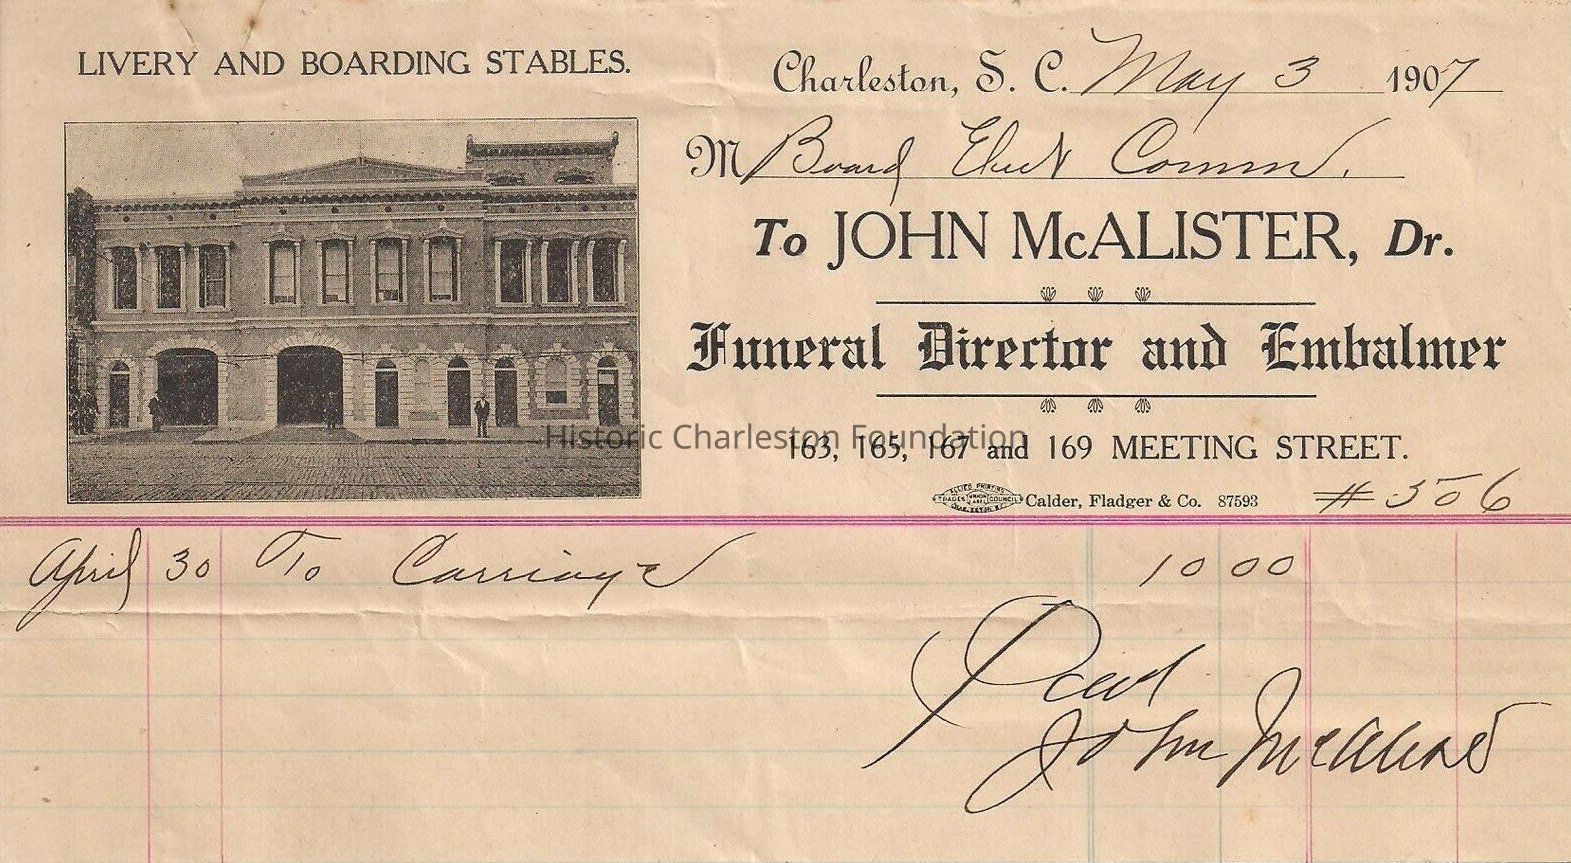 LIVERY AND BOARDING STABLES.
Charleston, S. C. May 3 1907
M Board Elect Comm.
To JOHN McALISTER, Dr.
Funeral Director and Embalmer
163, 165, 167 and 169 MEETING STREET.
Historic Charleston Foundation
ALLIED PRINTING TRADES UNION LABEL COUNCIL Calder, Fladger & Co. 87593
# 506
April 30 To Carriage 10 00
John McAlister